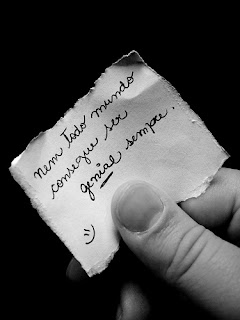 nem todo mundo
consegue ser
genial sempre.
:)